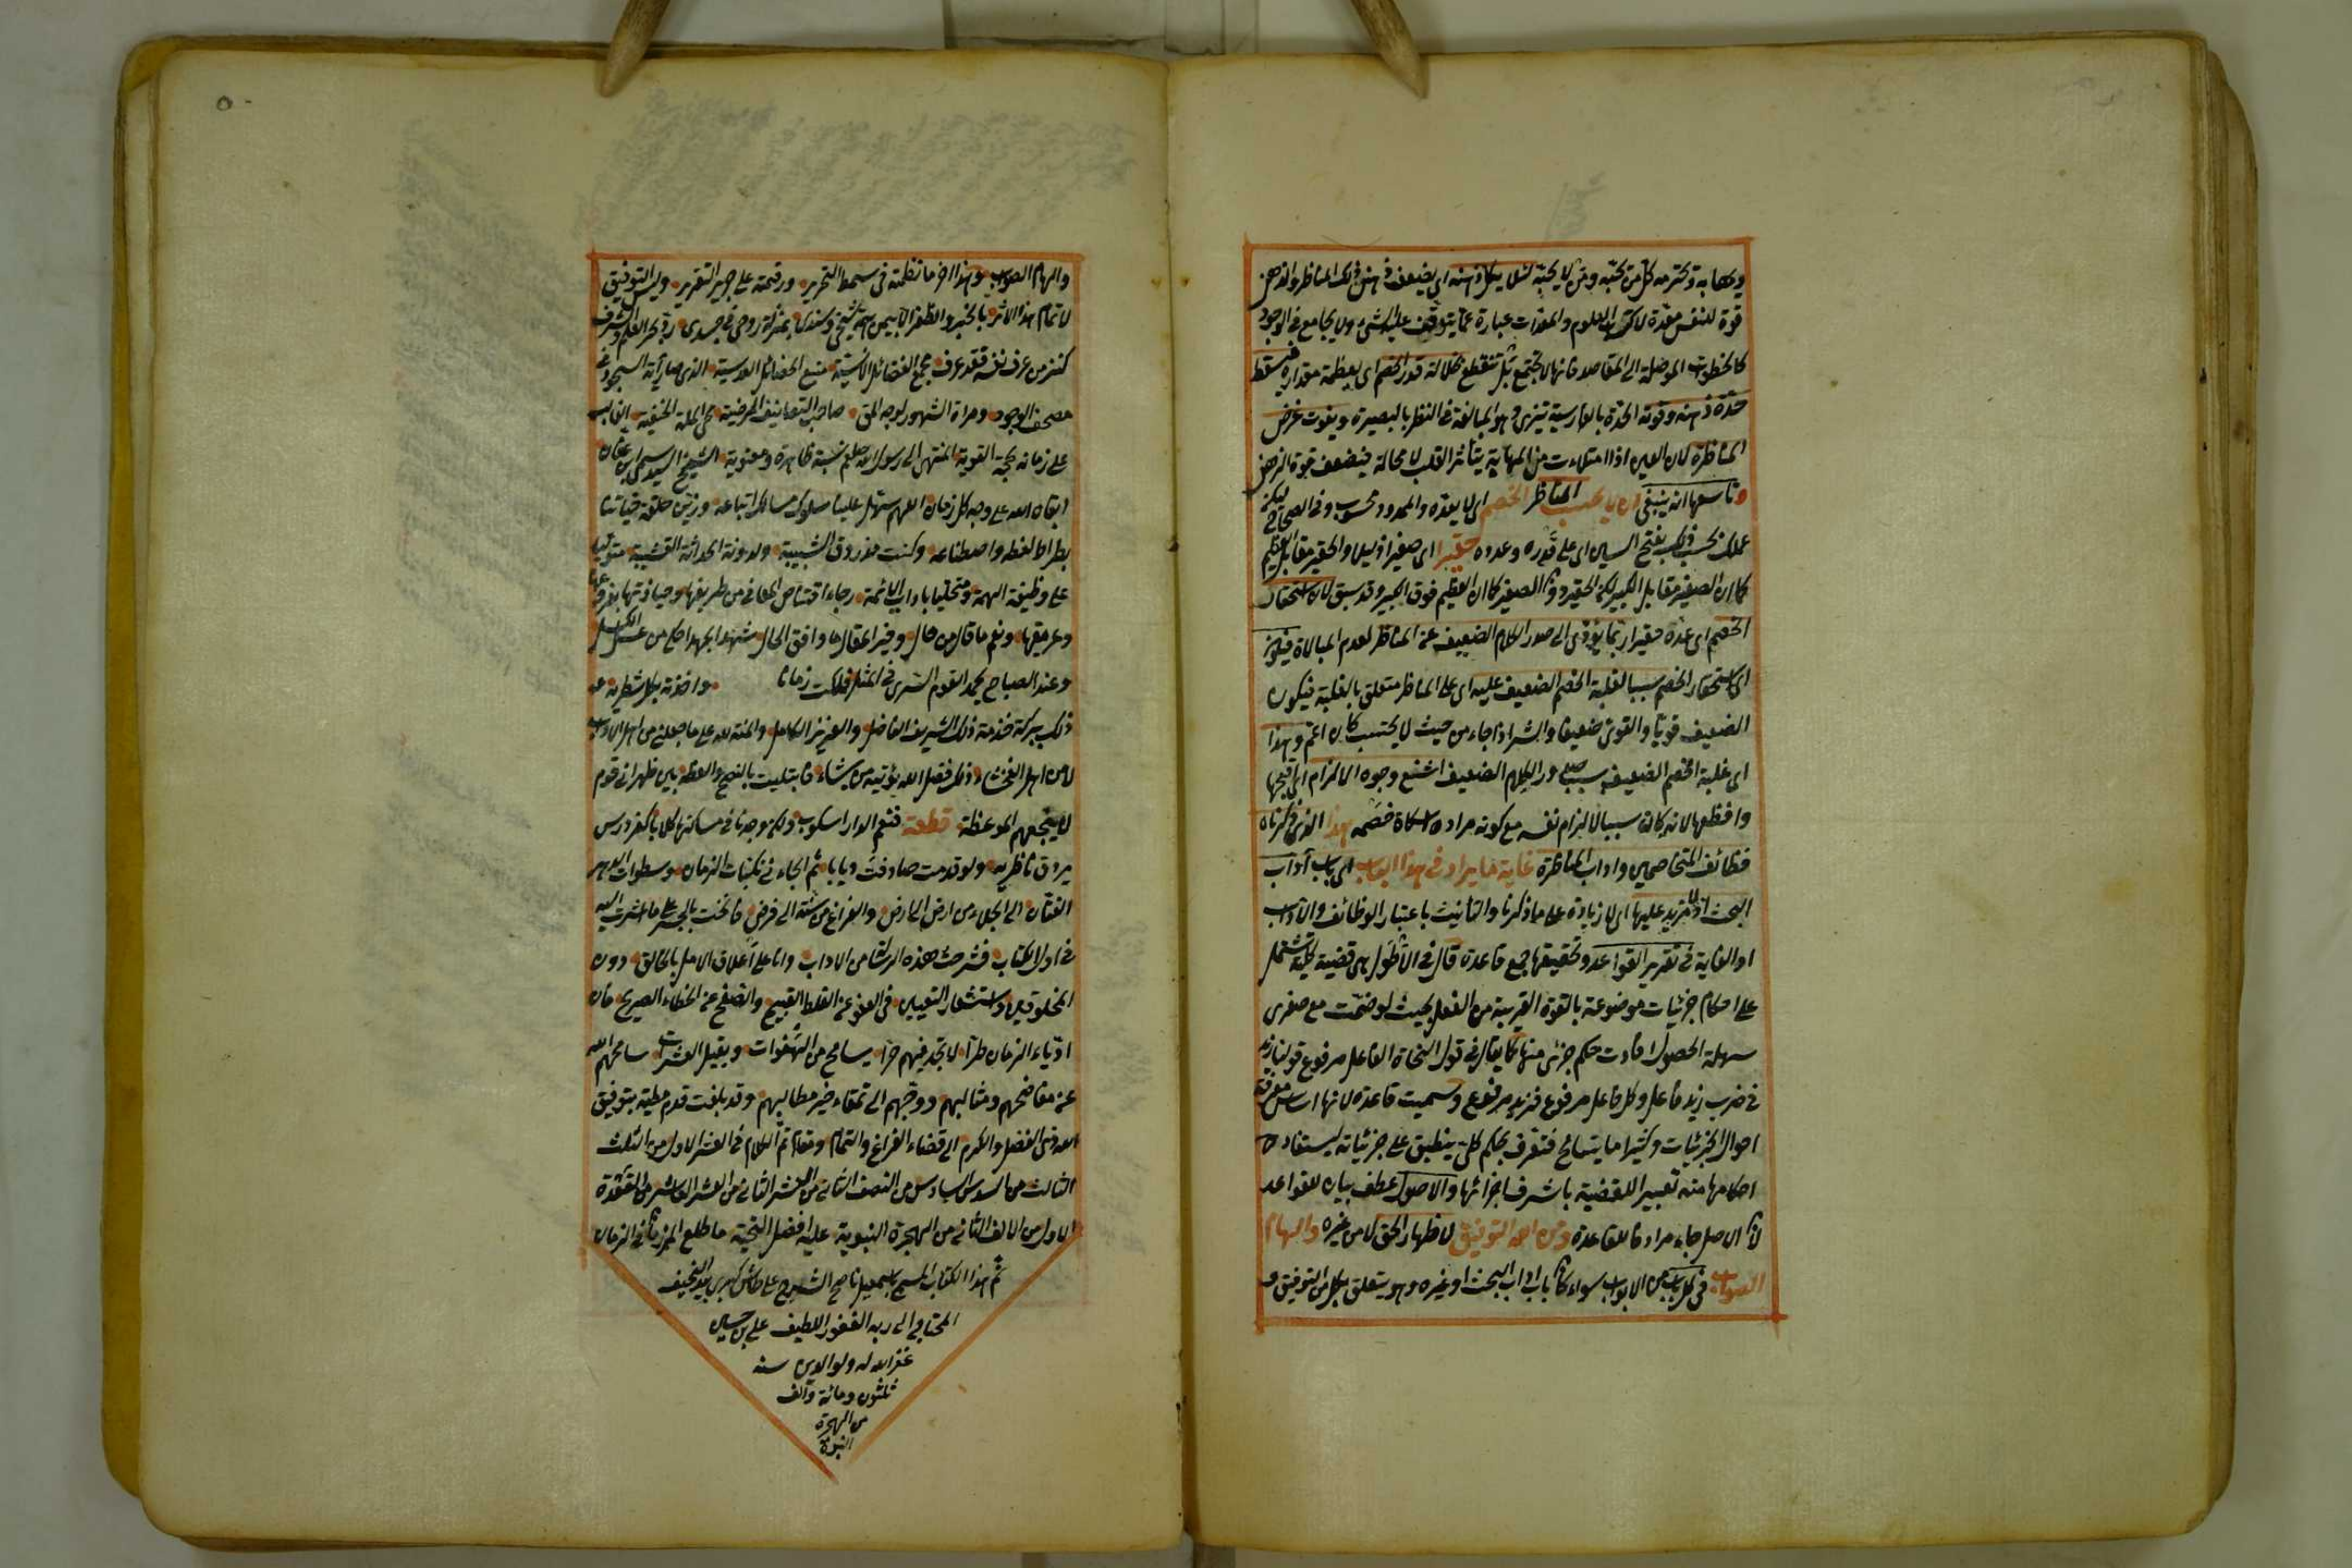 ويهابه وتحترمه كل من يحبه ومن لا يحبه لئلا يكل ذهنه اى يضعف ذهن ذلك المناظر والذهن
قوة للنفس معدة لاكتساب العلوم والمعدات عبارة عما يتوقف عليه الشىء ولا يجامع فى الوجود
كالخطوات الموصلة الى المقاصد فانها لا تجتمع بل تنقطع بجلالة قدر الخصم اى بعظمة مقداره فيسقط
حدة ذهنه وقوته الحدة بالفارسية تيزى وهو المبالغة فى النظر بالبصيرة ويفوت غرض
المناظرة لان العين اذا امتلاءت من المهابة يتأثر القلب لا محالة فيضعف قوة الذهن
وتاسعها انه ينبغى ان لا يحسب المناظر الخصم اى لا يعده والمعدود محسوب وفى الصحاح ليكن
عملك بحسب ذلك بفتح السين اى على قدره وعدده حقيرا اى صغيرا ذليلا والحقير مقابل العظيم
كما ان الصغير مقابل الكبير لكن الحقير دون الصغير كما ان العظيم فوق الكبير وقد سبق لان استحقار
الخصم اى عده حقيرا ربما يؤدى الى صدور الكلام الضعيف عن المناظر لعدم المبالاة فيكون
اى استحقار الخصم سببا لغلبة الخصم الضعيف عليه اى على المناظر متعلق بالغلبة فيكون
الضعيف قويا والقوى ضعيفا والشر اذا جاء من حيث لا يحتسب كان اغم وهذا
اى غلبة الخصم الضعيف بسبب صدور الكلام الضعيف اشنع وجوه الالزام اى اقبحها
وافظعها لانه كان سببا لالزام نفسه مع كونه مراده اسكات خصمه هذا الذى ذكرناه
من وظائف المتخاصمين واداب المناظرة غاية ما يراد فى هذا الباب اى باب آداب
البحث اذ لا مزيد عليها اى لا زيادة على ما ذكرنا والتأنيث باعتبار الوظائف والآداب
او الغاية فى تقرير القواعد وتحقيقها جمع قاعدة قال فى الاطول هى قضية كلية تشتمل
على احكام جزئيات موضوعة بالقوة القريبة من الفعل بحيث لو ضمت مع صغرى
سهلة الحصول افادت حكم جزئى منها كما يقال فى قول النحاة الفاعل مرفوع قولنا زيد
فى ضرب زيد فاعل وكل فاعل مرفوع فزيد مرفوع وسميت قاعدة لانها اساس معرفة
احوال الجزئيات وكثيرا ما يتسامح فتعرف بحكم كلى ينطبق على جزئياته ليستفاد
احكامها منه تعبيرا للقضية باشرف اجزائها والاصول عطف بيان للقواعد
لان الاصل جاء مرادفا للقاعدة ومن الله التوفيق لاظهار الحق لا من غيره والهام
الصواب فى كل باب من الابواب سواء كان باب اداب البحث او غيره وهو يتعلق بكل من التوفيق و
والهام الصواب وهذا اخر ما نظمته فى سمط التحرير ورقمته على حرير التقرير وليس التوفيق
لاتمام هذا الاثر بالخير والظفر الا بيمن شيخى وسندى بمنزلة روحى فى جسدى بحر العلم والشرف
كنز من عرف نفسه فقد عرف مجمع الفضائل الانسية منبع الخصائل القدسية الذى صار آية السجود فى
مصحف الوجود ومرآة الشهود لوجه الحق صاحب التصانيف المرضية محى الملة الحنفية الغالب
على زمانه بحجته القوية المنتهى الى رسول الله صلعم نسبة ظاهرة ومعنوية الشيخ السيد سمى ابن عفان
ابقاه الله على وجه كل زمان اللهم سهل علينا سلوك مسالك اتباعه وزين حلقة
بطراط لفظه واصطناعه وكنت مذ روق الشبيبة ولدونة الحداثة القشيبة متوليا
على وظيفة الهمة ومتحليا باداب الائمة رجاء اقتناص المعانى من طريقها
وعريقها ونعم ما قال من قال وخير المقال ما وافق الحال
وعند الصباح يحمد القوم السرى فى المثل فلكت زمانا واخوته بكل شطر منه
ذلك ببركة خدمة ذلك الشريف الفاضل والعزيز الكامل والمنة لله على ما جعلنى من اهل الآداب
لا من اهل الفحشاء ذلك فضل الله يؤتيه من يشاء فابتليت بالنصح والعظة بين ظهرانى قوم
لا ينجعهم الموعظة قطعة فنعم الدار اسكوب ولكن وجدنا فى مساكنها كلابا
يروق ناظريه ولو قدمت صادفت ذيابا ثم الجاء فى نكبات الزمان وسطوات الدهر
الفتان الى الجلاء من ارض الى ارض والفراغ من سنة الى فرض فانخت بالجسر على ما اشرت اليه
فى اول الكتاب فشرحت هذه الرسالة من الاداب وانا على اعلاق الامل بالخالق دون
المخلوقين واستشعار التعيين فى العفو عن الغلط القبيح والصفح عن الخطاء الصريح فان
ادباء الزمان طرا لا تجد فيهم حرا يسامح من الهفوات ويقيل العثرات سامحهم الله
عن مفاضحهم ومثالبهم ووجههم الى تلقاء خير مطالبهم وقد بلغت قدم مطية بتوفيق
الله ذى الفضل والكرم الى قضاء الفراغ والتمام ومقام تم الكلام فى العشر الاول من الثلث
الثالث من السدس السادس من النصف الثانى من العشر الثانى من العشر العاشر من العقدة
الاول من الالف الثانى من الهجرة النبوية عليه افضل التحية ما طلع المرزمان فى الزمان
تم هذا الكتاب المسمى باسمعيل ناصح الشروح على طاش كبرى بيد النحيف
المحتاج الى ربه الغفور اللطيف على بن حسين
غفر الله له ولوالديه سنه
ثلثون ومائة وآلف
من الهجرة
النبوة